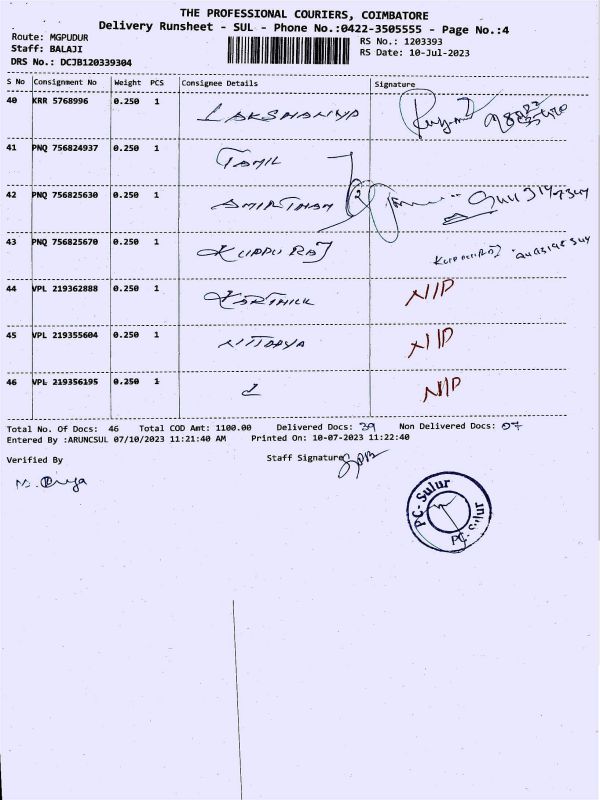 THE PROFESSIONAL COURIERS, COIMBATORE
Delivery Runsheet - SUL - Phone No.:0422-3505555 - Page No.:4
Route: MGPUDUR
Staff: BALAJI
DRS No.: DCJB120339304
RS No.: 1203393
RS Date: 10-Jul-2023
S No Consignment No Weight PCS Consignee Details Signature
40 KRR 5768996 0.250 1 LAKSHANYA
41 PNQ 756824937 0.250 1 TAMIL
42 PNQ 756825630 0.250 1 AMIRTHAM
43 PNQ 756825670 0.250 1 KUPPURAJ KUPPURAJ
44 VPL 219362888 0.250 1 KARTHICK N/D
45 VPL 219355604 0.250 1 N/D
46 VPL 219356195 0.250 1 N/D
Total No. Of Docs: 46 Total COD Amt: 1100.00 Delivered Docs: 39 Non Delivered Docs: 07
Entered By :ARUNCSUL 07/10/2023 11:21:40 AM Printed On: 10-07-2023 11:22:40
Verified By Staff Signature
PC- Sulur
PC- Sulur